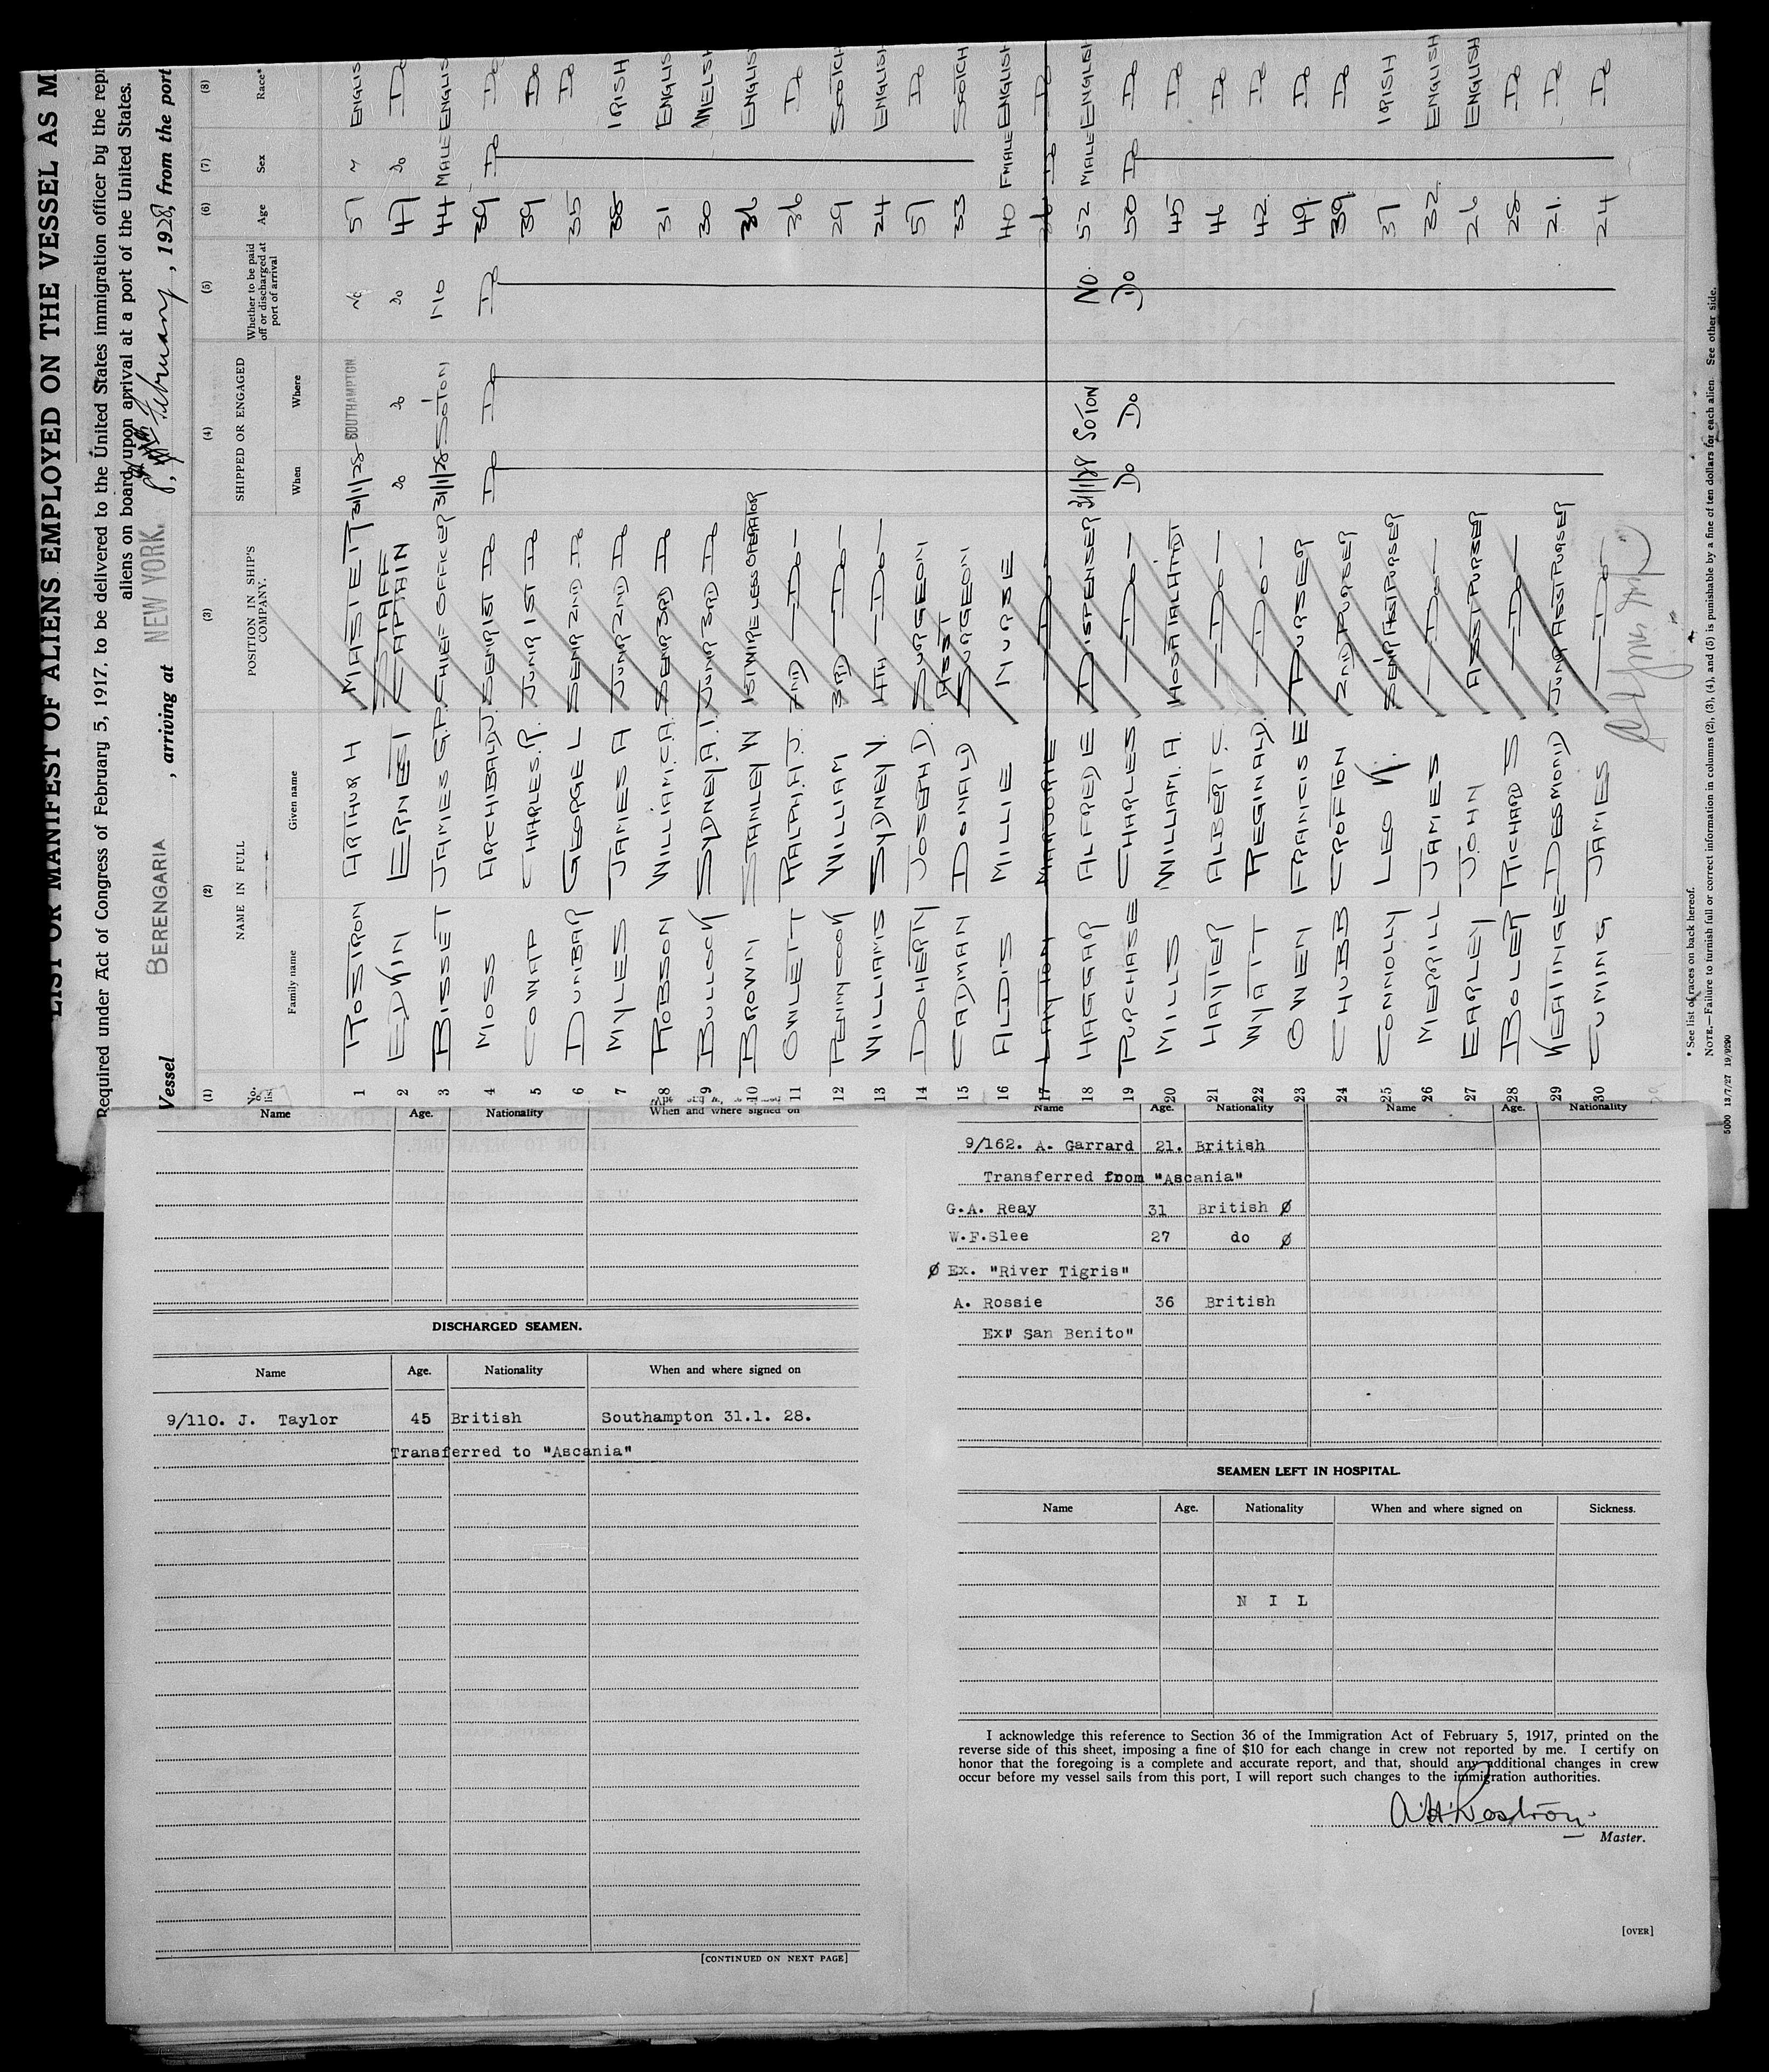 LIST OR MANIFEST OF ALIENS EMPLOYED ON THE VESSEL AS M
Required under Act of Congress of February 5, 1917, to be delivered to the United States immigration officer by the repr
aliens on board upon arrival at a port of the United States.
Vessel BERENGARIA, arriving at NEW YORK, 8 February, 1928, from the port
(1) (2) (3) (4) (5) (6) (7) (8)
No. list NAME IN FULL POSITION IN SHIP'S COMPANY. SHIPPED OR ENGAGED Whether to be paid off or discharged at port of arrival Age Sex Race*
Family name Given name When Where
1 ROSTRON ARTHUR H MASTER 31/1/28 SOUTHAMPTON No 57 M ENGLIS
2 EDKIN ERNEST STAFF CAPTAIN Do Do Do 47 Do Do
3 BISSET JAMES G.P. CHIEF OFFICER 31/1/28 SOTON NO 44 MALE ENGLIS
4 MOSS ARCHIBALD J. SENR 1ST Do Do Do Do 39 Do Do
5 COWAP CHARLES. R. JUNR 1ST Do 39 Do
6 DUNBAR GEORGE L SENR 2ND Do 35 Do
7 MYLES JAMES A JUNR 2ND Do 38 IRISH
8 ROBSON WILLIAM. C.A. SENR 3RD Do 31 ENGLIS
9 BULLOCK SYDNEY. A. I. JUNR 3RD Do 30 WELSH
10 BROWN STANLEY W 1ST WIRELESS OPERATOR 36 ENGLIS
11 OWLETT RALPH. A. J. 2ND — Do — 36 Do
12 PENNICOOK WILLIAM 3RD — Do — 29 SCOTCH
13 WILLIAMS SYDNEY V. 4TH — Do — 24 ENGLISH
14 DOHERTY JOSEPH D. SURGEON 57 Do
15 CADMAN DONALD ASST SURGEON 33 SCOTCH
16 ALDIS MILLIE NURSE 40 FMALE ENGLISH
17 LAYTON MARJORIE — Do — 36 Do Do
18 HAGGAR ALFRED E DISPENSER 31/1/28 SOTON NO. 52 MALE ENGLISH
19 PURCHASE CHARLES — Do — Do Do Do 50 Do Do
20 MILLS WILLIAM. A. HOSPITAL ATTDT 45 Do
21 HAYTER ALBERT. C. — Do — 46 Do
22 WYATT REGINALD. — Do — 42. Do
23 OWEN FRANCIS E PURSER 49. Do
24 CHUBB CROFTON 2ND PURSER 39 Do
25 CONNOLLY LEO V. SENR ASST PURSER 37 IRISH
26 MERRILL JAMES — Do — 32. ENGLISH
27 EARLEY JOHN ASST PURSER 26 ENGLISH
28 BOLER RICHARD S — Do — 28 Do
29 KEATINGE DESMOND JUNR ASST PURSER 21. Do
30 CUMING JAMES — Do — 24 Do
* See list of races on back hereof.
NOTE.—Failure to furnish full or correct information in columns (2), (3), (4), and (5) is punishable by a fine of ten dollars for each alien. See other side.
5000 13/7/27 19/9290
Name Age. Nationality When and where signed on
DISCHARGED SEAMEN.
Name Age. Nationality When and where signed on
9/110. J. Taylor 45 British Southampton 31.1. 28.
Transferred to "Ascania"
[CONTINUED ON NEXT PAGE]
Name Age. Nationality Name Age. Nationality
9/162. A. Garrard 21. British
Transferred from "Ascania"
G.A. Reay 31 British Ø
W.F.Slee 27 do Ø
Ø Ex. "River Tigris"
A. Rossie 36 British
Ex" San Benito"
SEAMEN LEFT IN HOSPITAL.
Name Age. Nationality When and where signed on Sickness.
N I L
I acknowledge this reference to Section 36 of the Immigration Act of February 5, 1917, printed on the
reverse side of this sheet, imposing a fine of $10 for each change in crew not reported by me. I certify on
honor that the foregoing is a complete and accurate report, and that, should any additional changes in crew
occur before my vessel sails from this port, I will report such changes to the immigration authorities.
A.H. Rostron
Master.
[OVER]